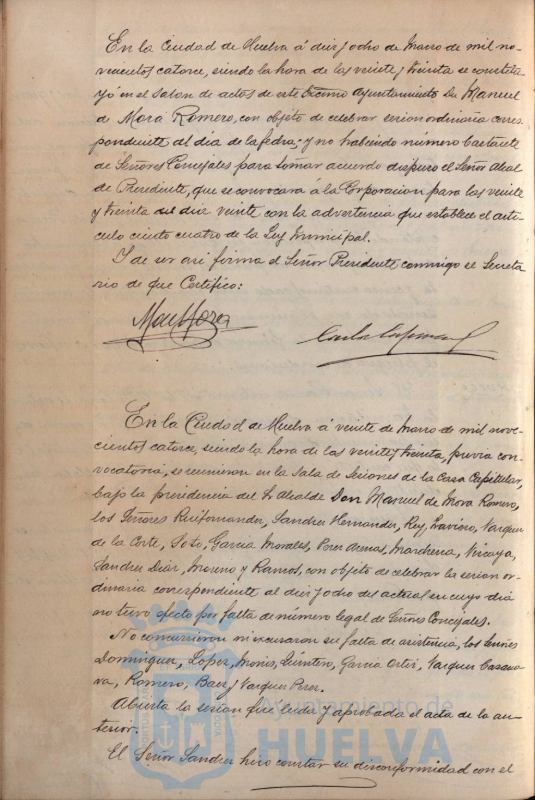 En la Ciudad de Huelva á diez y ocho de Marzo de mil no-
vecientos catorce, siendo la hora de las veinte y treinta se constitu-
yó en el salon de actos de este Excmo Ayuntamiento Dn Manuel
de Mora Romero, con objeto de celebrar sesion ordinaria corres
pondiente del dia de la fecha; y no habiendo número bastante
de Señores Concejales para tomar acuerdo dispuso el Señor Alcal
de Presidente, que se convocara á la Corporacion para las veinte
y treinta del dia veinte con la advertencia que establece el arti-
culo ciento cuatro de la Ley Municipal.
Y de ser asi firma el Señor Presidente conmigo el Secreta
rio de que Certifico:
En la Ciudad de Huelva á veinte de Marzo de mil nove-
cientos catorce, siendo la hora de las veinte y treinta, previa con-
vocatoria, se reunieron en la Sala de Sesiones de la Casa Capitular,
bajo la presidencia del Sr Alcalde Don Manuel de Mora Romero,
los Señores Ruifernandez, Sandez Hernandez, Rey, Travieso, Vazquez
de la Corte, Soto, Garcia Morales, Perez Arenas, Marchena, Vizcaya,
Sandez Diaz, Moreno y Ramos, con objeto de celebrar la sesion or-
dinaria correspondiente al diez y ocho del actual en cuyo dia
no tuvo efecto por falta de número legal de Señores Concejales.
No concurrieron ni escusaron su falta de asistencia, los Señores
Dominguez, Lopez, Monis, Quintero, Garcia Ortiz, Vazquez Casano-
va, Romero, Baez y Vazquez Perez.
Abierta la sesion fué leida y aprobada el acta de la an-
terior.
El Señor Sandez hizo constar su disconformidad con el
Ayuntamiento de
HUELVA